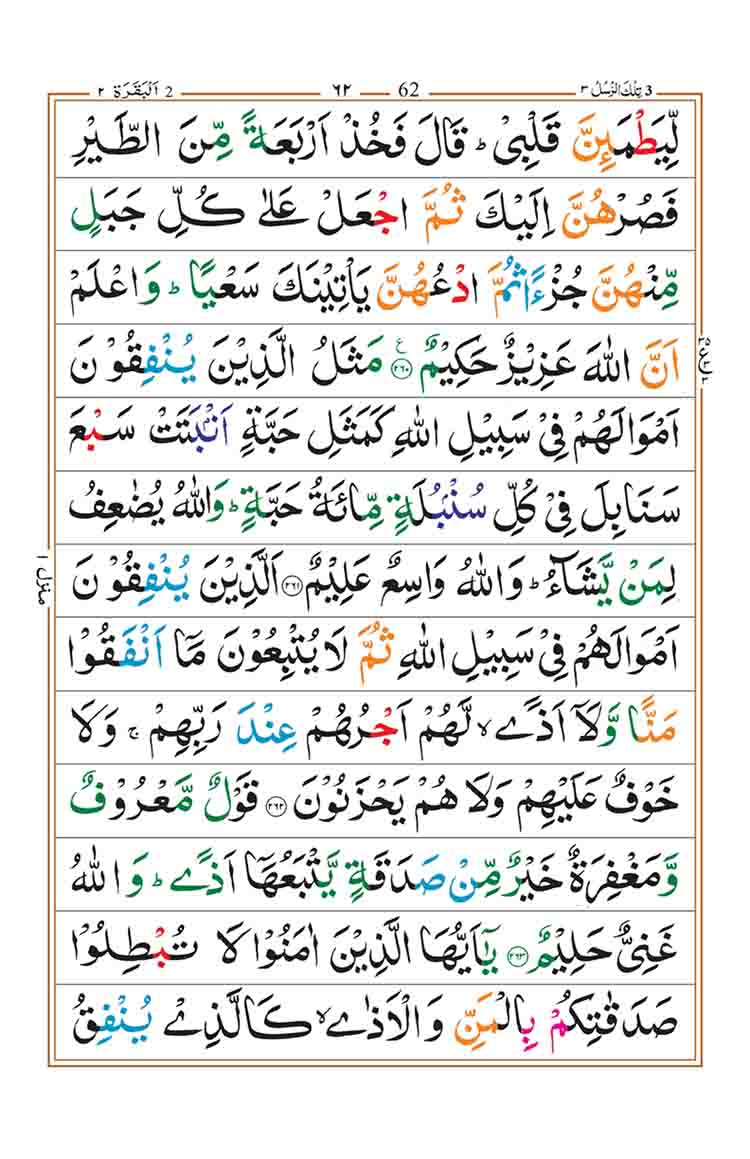 3 تِلْكَ الرُّسُلُ ٣ 62 ٦٢ 2 اَلْبَقَرَة ٢
لِّيَطْمَئِنَّ قَلْبِىْ ؕ قَالَ فَخُذْ اَرْبَعَةً مِّنَ الطَّيْرِ
فَصُرْهُنَّ اِلَيْكَ ثُمَّ اجْعَلْ عَلٰى كُلِّ جَبَلٍ
مِّنْهُنَّ جُزْءًا ثُمَّ ادْعُهُنَّ يَاْتِيْنَكَ سَعْيًا ؕ وَاعْلَمْ
اَنَّ اللّٰهَ عَزِيْزٌ حَكِيْمٌ ۝٢٦٠ ع مَثَلُ الَّذِيْنَ يُنْفِقُوْنَ
اَمْوَالَهُمْ فِىْ سَبِيْلِ اللّٰهِ كَمَثَلِ حَبَّةٍ اَنْۢبَتَتْ سَبْعَ
سَنَابِلَ فِىْ كُلِّ سُنْۢبُلَةٍ مِّائَةُ حَبَّةٍ ؕ وَاللّٰهُ يُضٰعِفُ
لِمَنْ يَّشَآءُ ؕ وَاللّٰهُ وَاسِعٌ عَلِيْمٌ ۝٢٦١ اَلَّذِيْنَ يُنْفِقُوْنَ
اَمْوَالَهُمْ فِىْ سَبِيْلِ اللّٰهِ ثُمَّ لَا يُتْبِعُوْنَ مَاۤ اَنْفَقُوْا
مَنًّا وَّلَاۤ اَذًى ۙ لَّهُمْ اَجْرُهُمْ عِنْدَ رَبِّهِمْ ۚ وَلَا
خَوْفٌ عَلَيْهِمْ وَلَا هُمْ يَحْزَنُوْنَ ۝٢٦٢ قَوْلٌ مَّعْرُوْفٌ
وَّمَغْفِرَةٌ خَيْرٌ مِّنْ صَدَقَةٍ يَّتْبَعُهَاۤ اَذًى ؕ وَاللّٰهُ
غَنِىٌّ حَلِيْمٌ ۝٢٦٣ يٰۤاَيُّهَا الَّذِيْنَ اٰمَنُوْا لَا تُبْطِلُوْا
صَدَقٰتِكُمْ بِالْمَنِّ وَالْاَذٰى ۙ كَالَّذِىْ يُنْفِقُ
منزل ١